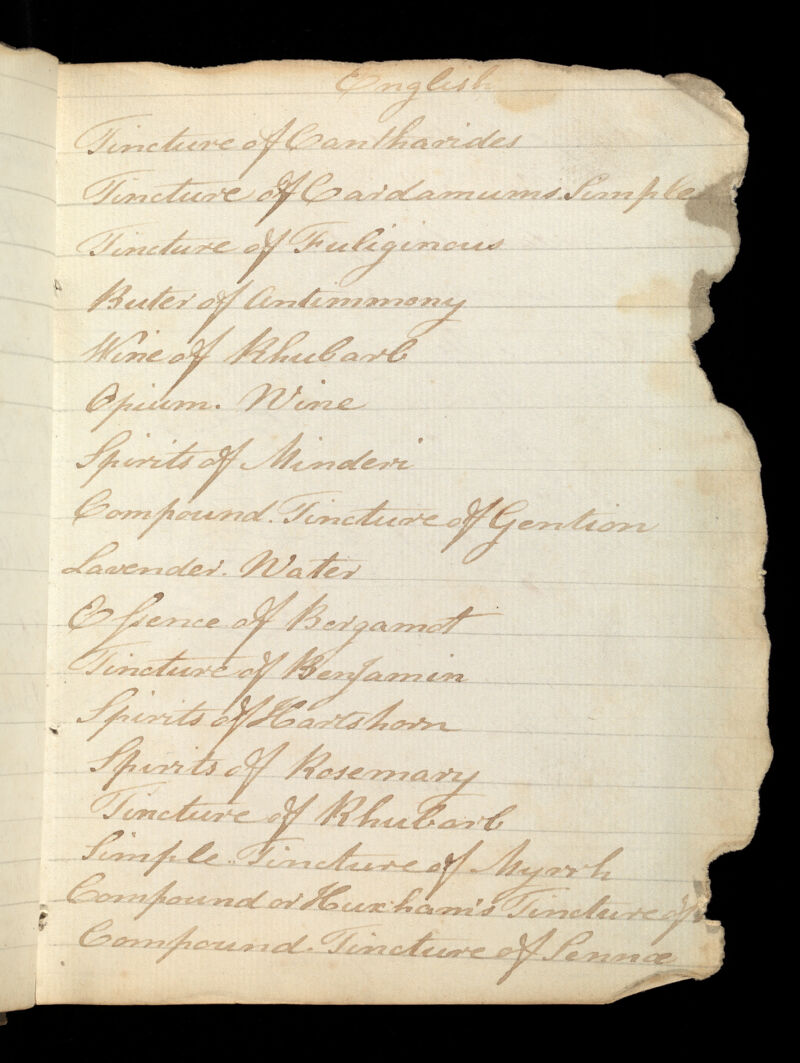 English
Tincture of Cantharides
Tincture of Cardamums Simple
Tincture of Fuliginous
Buter of Antimmony
Wine of Rhubarb
Opium. Wine
Spirits of Minderi
Compound. Tincture of Gention
Lavender. Water
Essence of Bergamot
Tincture of Benjamin
Spirits of Hartshorn
Spirits of Rosemary
Tincture of Rhubarb
Simple. Tincture of Myrrh
Compound or Huxham's Tincture of
Compound. Tincture of Sennæ